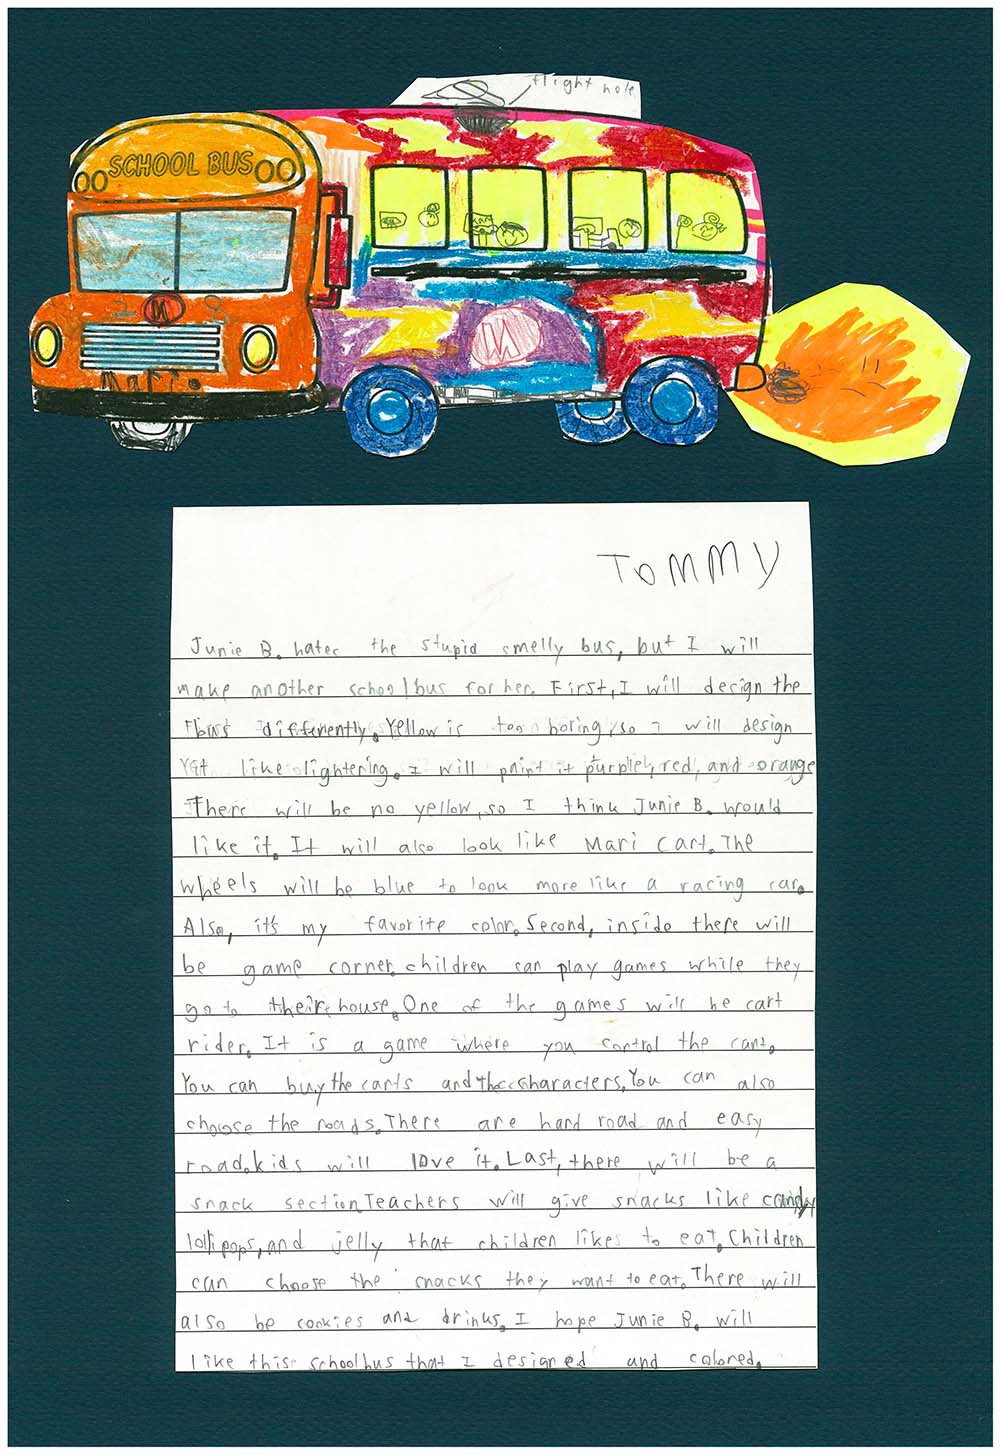 flight hole
SCHOOL BUS
M
M
Mari.
TOMMY
Junie B. hates the stupid smelly bus, but I will
make another school bus for her. First, I will decign the
bus differently. Yellow is too boring, so I will design
like lightering. I will paint it purple, red, and orange
There will be no yellow, so I think Junie B. would
like it. It will also look like Mari Cart. The
wheels will be blue to look more like a racing car.
Also, it's my favorite color. Second, inside there will
be game corner. children can play games while they
go to their house. One of the games will be cart
rider. It is a game where you control the cart.
You can buy the carts and the characters. You can also
choose the roads. There are hard road and easy
road. kids will love it. Last, there will be a
snack section Teachers will give snacks like candy
lollipops, and jelly that children likes to eat. Children
can choose the snacks they want to eat. There will
also be cookies and drinks. I hope Junie B. will
like this school bus that I designed and colored.